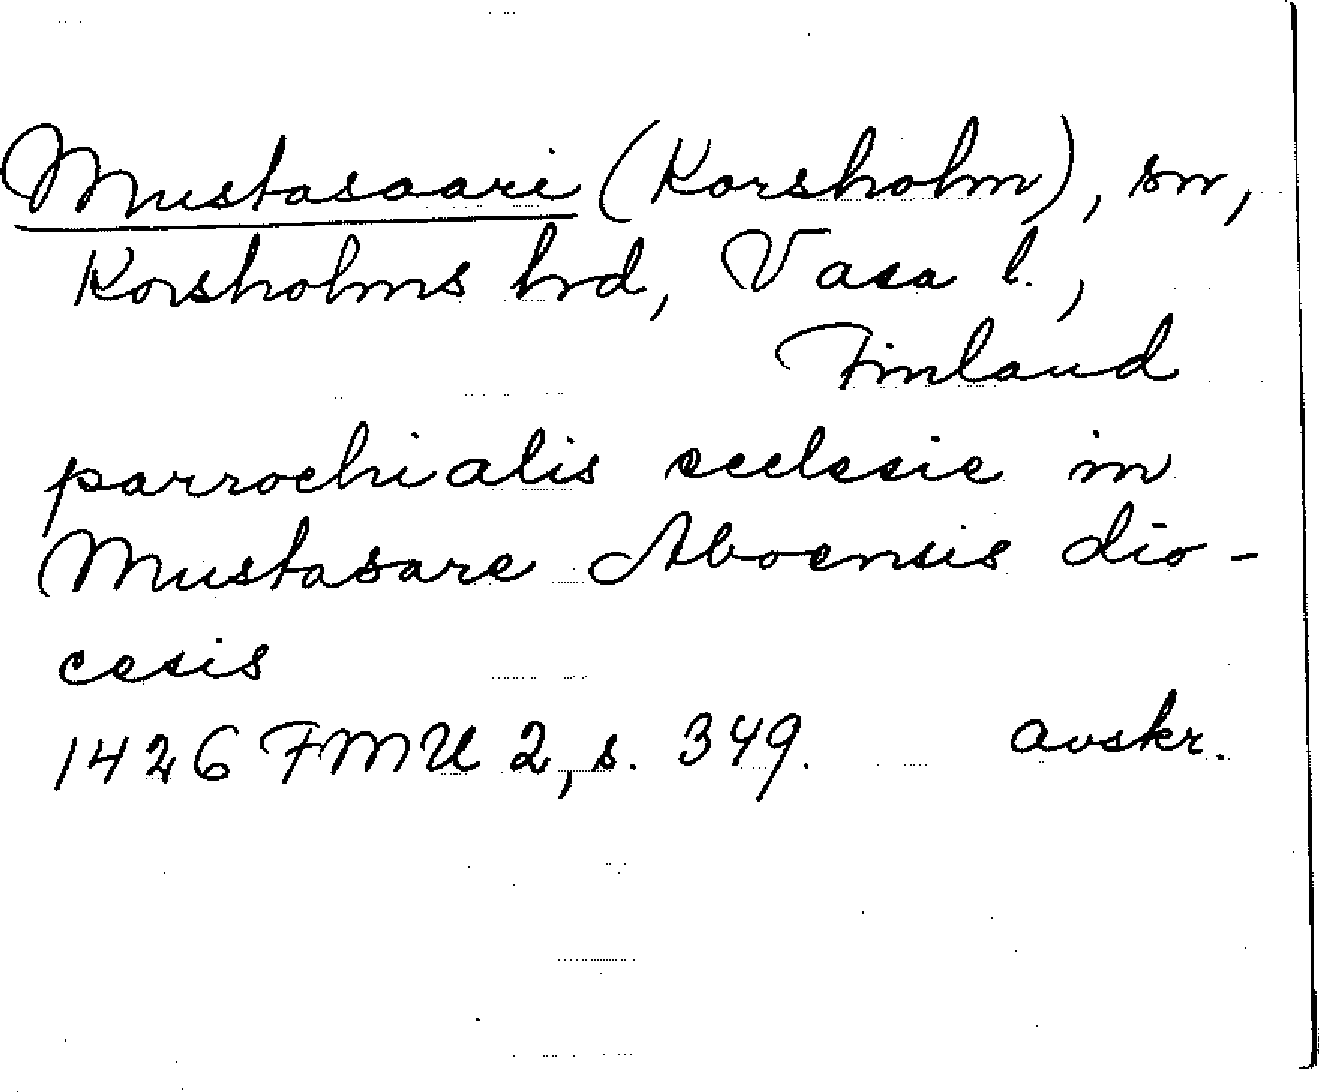 Mustasaari (Korsholm), sn,
Korsholms hrd, Vasa l.,
Finland
parrochialis ecclesie in
Mustasare Aboensis dio-
cesis
1426 FMU 2, s. 349. avskr.